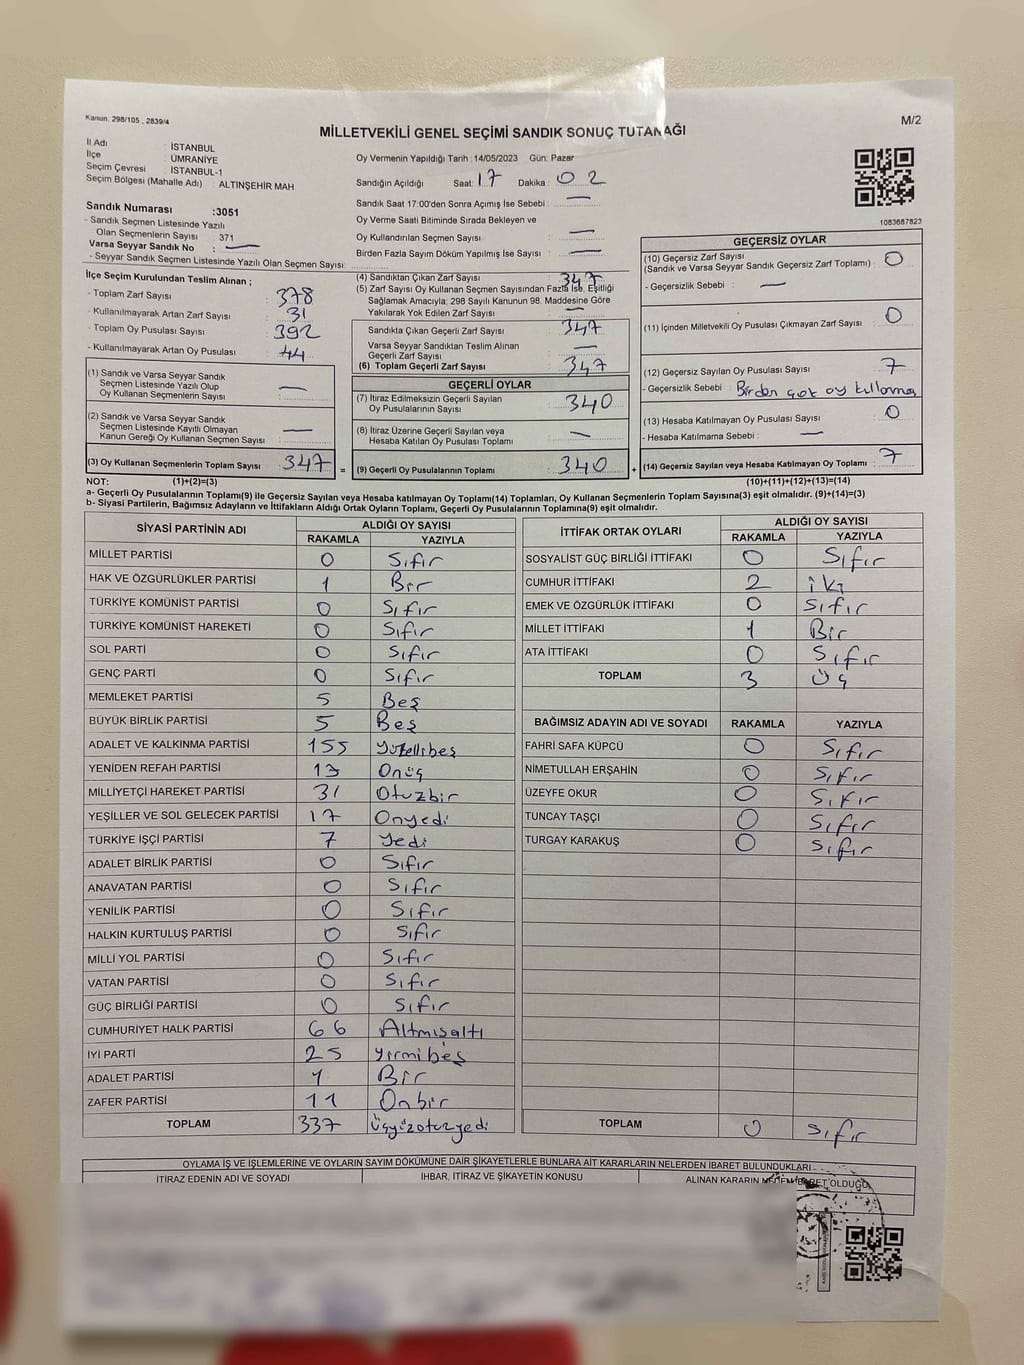 Kanun. 298/105 , 2839/4
M/2
MİLLETVEKİLİ GENEL SEÇİMİ SANDIK SONUÇ TUTANAĞI
İl Adı : İSTANBUL
İlçe : ÜMRANİYE
Seçim Çevresi : İSTANBUL-1
Seçim Bölgesi (Mahalle Adı) : ALTINŞEHİR MAH
Sandık Numarası :3051
- Sandık Seçmen Listesinde Yazılı
Olan Seçmenlerin Sayısı : 371
Varsa Seyyar Sandık No : —
- Seyyar Sandık Seçmen Listesinde Yazılı Olan Seçmen Sayısı:
Oy Vermenin Yapıldığı Tarih : 14/05/2023 Gün: Pazar
Sandığın Açıldığı Saat: 17 Dakika : 02
Sandık Saat 17:00'den Sonra Açımış İse Sebebi : —
Oy Verme Saati Bitiminde Sırada Bekleyen ve
Oy Kullandırılan Seçmen Sayısı : —
Birden Fazla Sayım Döküm Yapılmış İse Sayısı : —
1083687823
İlçe Seçim Kurulundan Teslim Alınan ;
- Toplam Zarf Sayısı : 378
- Kullanılmayarak Artan Zarf Sayısı : 31
- Toplam Oy Pusulası Sayısı : 392
- Kullanılmayarak Artan Oy Pusulası : 44
(1) Sandık ve Varsa Seyyar Sandık
Seçmen Listesinde Yazılı Olup
Oy Kullanan Seçmenlerin Sayısı : —
(2) Sandık ve Varsa Seyyar Sandık
Seçmen Listesinde Kayıtlı Olmayan
Kanun Gereği Oy Kullanan Seçmen Sayısı : —
(3) Oy Kullanan Seçmenlerin Toplam Sayısı : 347 =
(4) Sandıktan Çıkan Zarf Sayısı : 347
(5) Zarf Sayısı Oy Kullanan Seçmen Sayısından Fazla İse, Eşitliği
Sağlamak Amacıyla; 298 Sayılı Kanunun 98. Maddesine Göre
Yakılarak Yok Edilen Zarf Sayısı : —
Sandıkta Çıkan Geçerli Zarf Sayısı : 347
Varsa Seyyar Sandıktan Teslim Alınan
Geçerli Zarf Sayısı : —
(6) Toplam Geçerli Zarf Sayısı : 347
GEÇERLİ OYLAR
(7) İtiraz Edilmeksizin Geçerli Sayılan
Oy Pusulalarının Sayısı : 340
(8) İtiraz Üzerine Geçerli Sayılan veya
Hesaba Katılan Oy Pusulası Toplamı : —
(9) Geçerli Oy Pusulalarının Toplamı : 340 +
GEÇERSİZ OYLAR
(10) Geçersiz Zarf Sayısı
(Sandık ve Varsa Seyyar Sandık Geçersiz Zarf Toplamı) : 0
- Geçersizlik Sebebi : —
(11) İçinden Milletvekili Oy Pusulası Çıkmayan Zarf Sayısı : 0
(12) Geçersiz Sayılan Oy Pusulası Sayısı : 7
- Geçersizlik Sebebi : Birden çok oy kullanma
(13) Hesaba Katılmayan Oy Pusulası Sayısı : 0
- Hesaba Katılmama Sebebi : —
(14) Geçersiz Sayılan veya Hesaba Katılmayan Oy Toplamı : 7
NOT: (1)+(2)=(3) (10)+(11)+(12)+(13)=(14)
a- Geçerli Oy Pusulalarının Toplamı(9) ile Geçersiz Sayılan veya Hesaba katılmayan Oy Toplamı(14) Toplamları, Oy Kullanan Seçmenlerin Toplam Sayısına(3) eşit olmalıdır. (9)+(14)=(3)
b- Siyasi Partilerin, Bağımsız Adayların ve İttifakların Aldığı Ortak Oyların Toplamı, Geçerli Oy Pusulalarının Toplamına(9) eşit olmalıdır.
SİYASİ PARTİNİN ADI ALDIĞI OY SAYISI
RAKAMLA YAZIYLA
MİLLET PARTİSİ 0 Sıfır
HAK VE ÖZGÜRLÜKLER PARTİSİ 1 Bir
TÜRKİYE KOMÜNİST PARTİSİ 0 Sıfır
TÜRKİYE KOMÜNİST HAREKETİ 0 Sıfır
SOL PARTİ 0 Sıfır
GENÇ PARTİ 0 Sıfır
MEMLEKET PARTİSİ 5 Beş
BÜYÜK BİRLİK PARTİSİ 5 Beş
ADALET VE KALKINMA PARTİSİ 155 yüzellibeş
YENİDEN REFAH PARTİSİ 13 Onüç
MİLLİYETÇİ HAREKET PARTİSİ 31 Otuzbir
YEŞİLLER VE SOL GELECEK PARTİSİ 17 Onyedi
TÜRKİYE İŞÇİ PARTİSİ 7 Yedi
ADALET BİRLİK PARTİSİ 0 Sıfır
ANAVATAN PARTİSİ 0 Sıfır
YENİLİK PARTİSİ 0 Sıfır
HALKIN KURTULUŞ PARTİSİ 0 Sıfır
MİLLİ YOL PARTİSİ 0 Sıfır
VATAN PARTİSİ 0 Sıfır
GÜÇ BİRLİĞİ PARTİSİ 0 Sıfır
CUMHURİYET HALK PARTİSİ 66 Altmışaltı
İYİ PARTİ 25 yirmibeş
ADALET PARTİSİ 1 Bir
ZAFER PARTİSİ 11 Onbir
TOPLAM 337 üçyüzotuzyedi
İTTİFAK ORTAK OYLARI ALDIĞI OY SAYISI
RAKAMLA YAZIYLA
SOSYALİST GÜÇ BİRLİĞİ İTTİFAKI 0 Sıfır
CUMHUR İTTİFAKI 2 iki
EMEK VE ÖZGÜRLÜK İTTİFAKI 0 Sıfır
MİLLET İTTİFAKI 1 Bir
ATA İTTİFAKI 0 Sıfır
TOPLAM 3 Üç
BAĞIMSIZ ADAYIN ADI VE SOYADI RAKAMLA YAZIYLA
FAHRİ SAFA KÜPCÜ 0 Sıfır
NİMETULLAH ERŞAHİN 0 Sıfır
ÜZEYFE OKUR 0 Sıfır
TUNCAY TAŞÇI 0 Sıfır
TURGAY KARAKUŞ 0 Sıfır
TOPLAM 0 Sıfır
OYLAMA İŞ VE İŞLEMLERİNE VE OYLARIN SAYIM DÖKÜMÜNE DAİR ŞİKAYETLERLE BUNLARA AİT KARARLARIN NELERDEN İBARET BULUNDUKLARI
İTİRAZ EDENİN ADI VE SOYADI İHBAR, İTİRAZ VE ŞİKAYETİN KONUSU ALINAN KARARIN NEDEN İBARET OLDUĞU